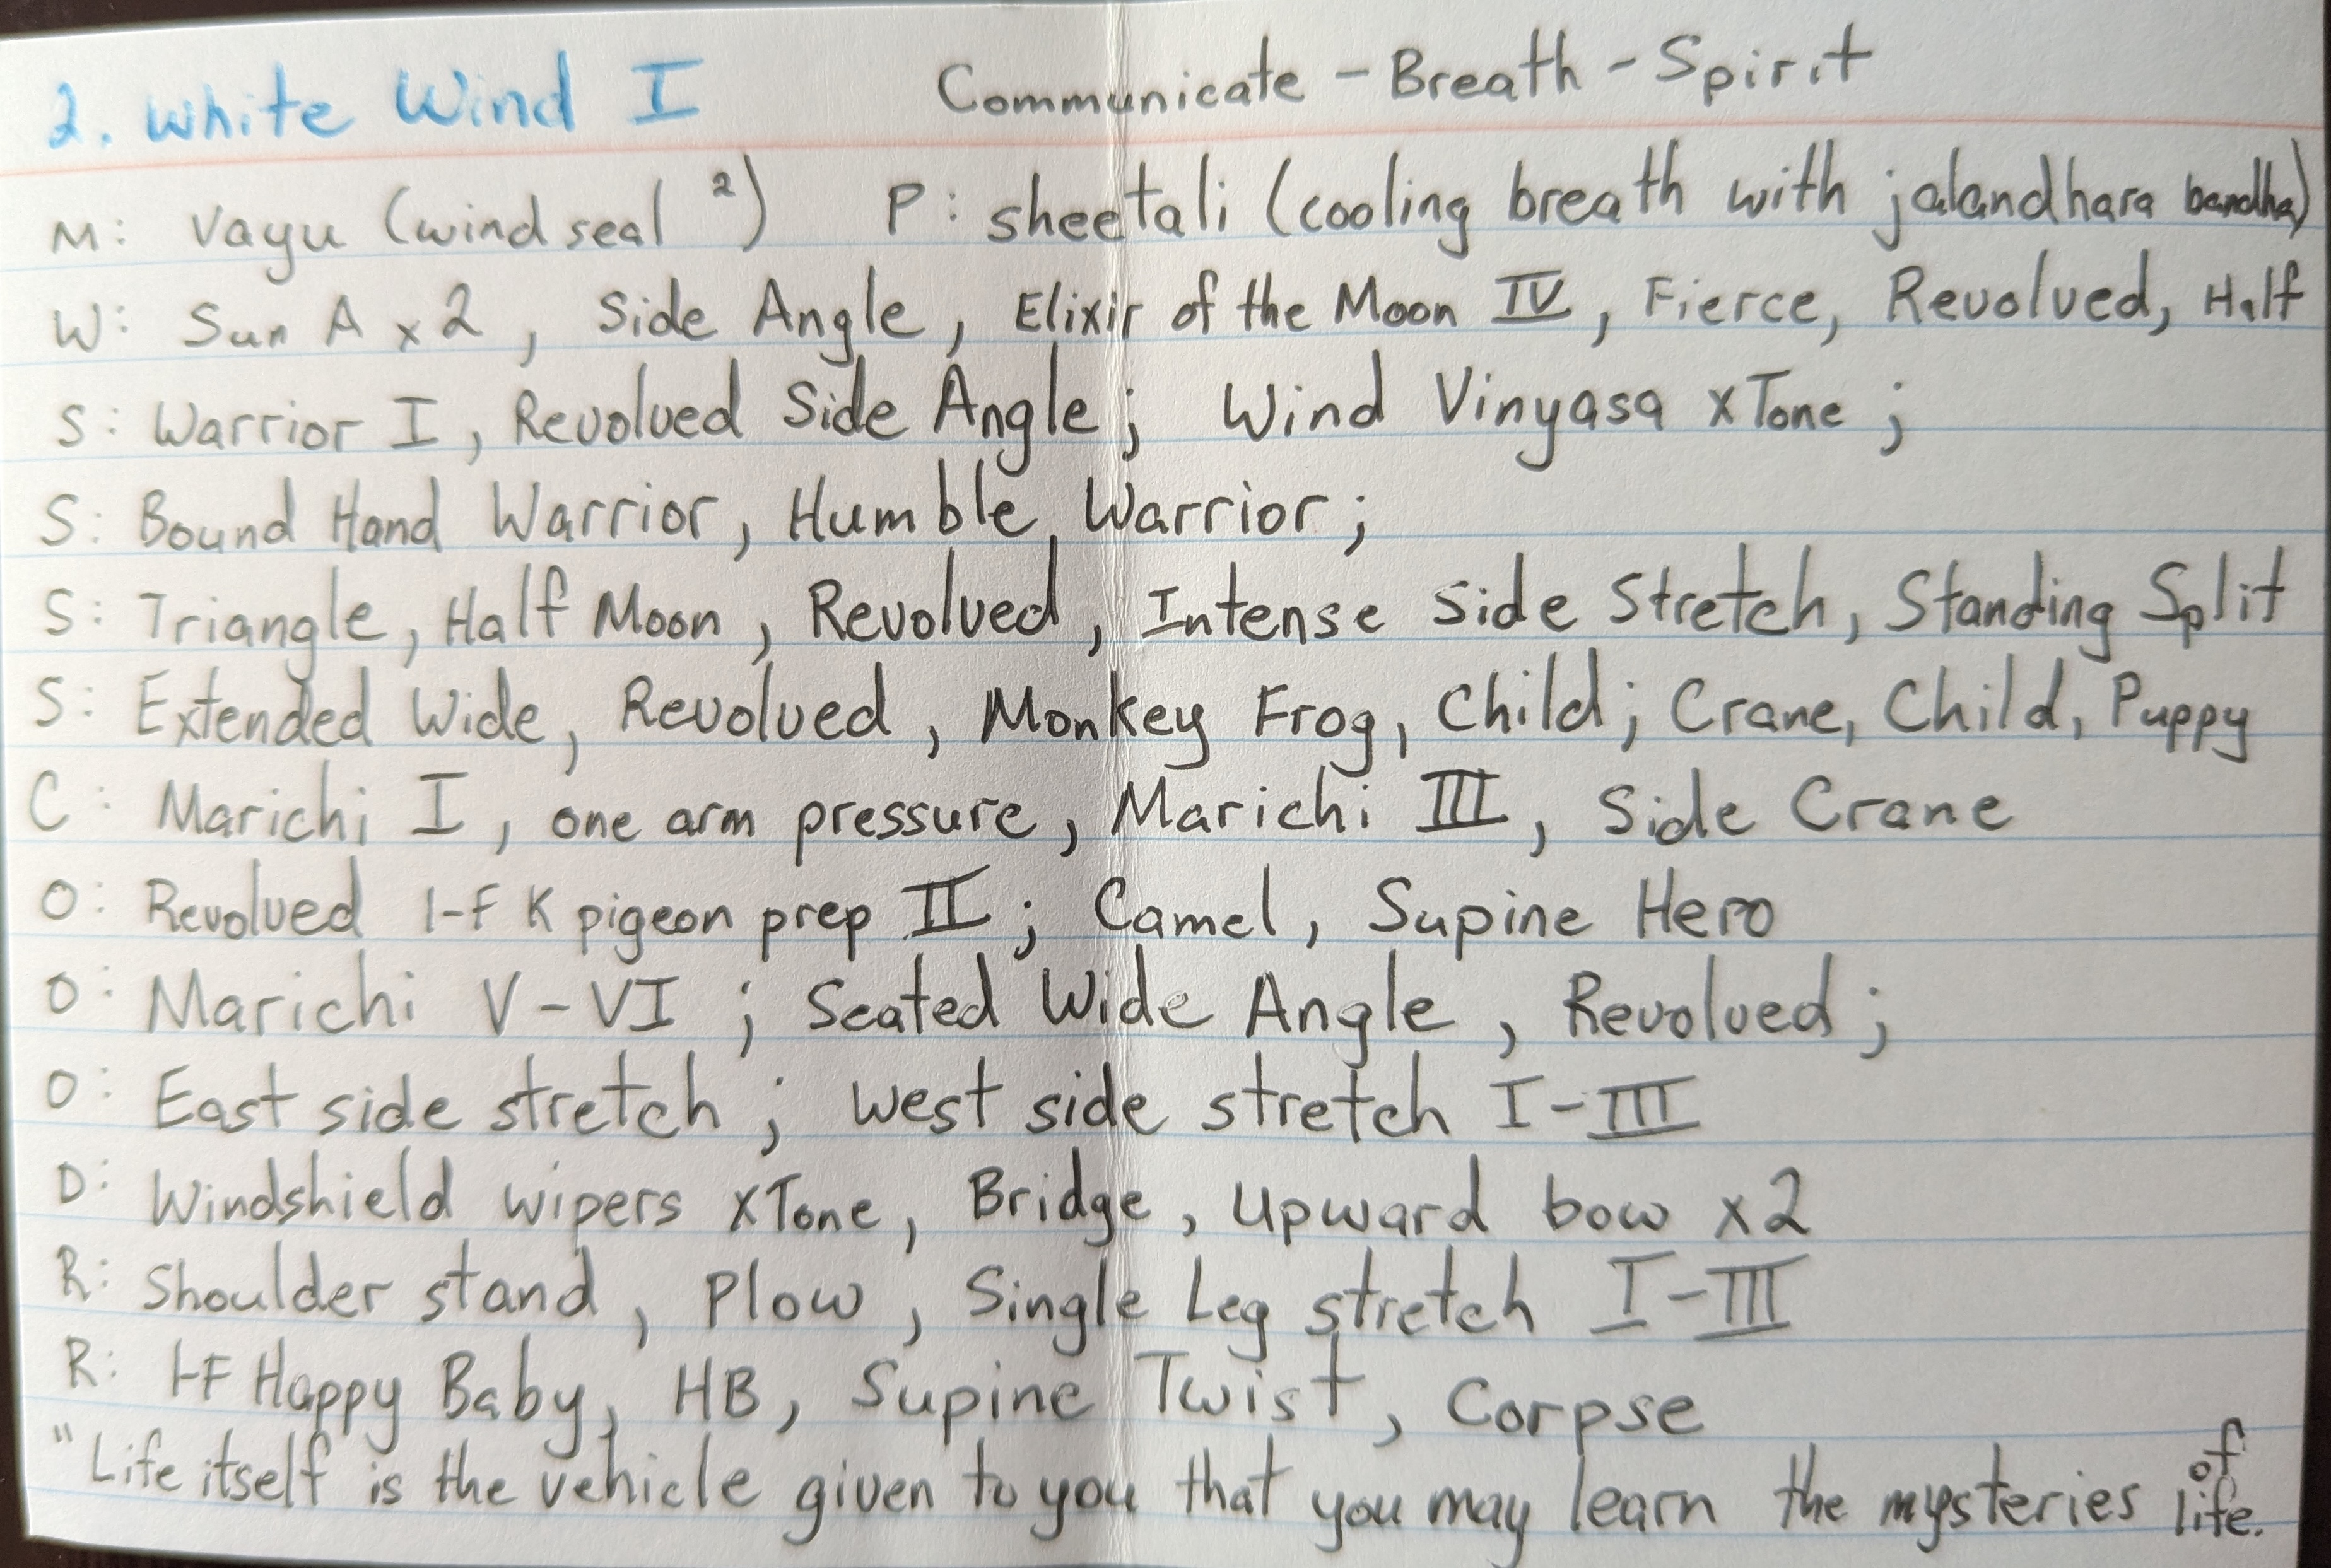 2. White Wind I Communicate - Breath - Spirit
M: Vayu (wind seal ²) P: sheetali (cooling breath with jalandhara bandha)
W: Sun A x 2, Side Angle, Elixir of the Moon IV, Fierce, Revolved, Half
S: Warrior I, Revolved Side Angle; Wind Vinyasa x Tone;
S: Bound Hand Warrior, Humble Warrior;
S: Triangle, Half Moon, Revolved, Intense Side Stretch, Standing Split
S: Extended Wide, Revolved, Monkey Frog, Child; Crane, Child, Puppy
C: Marichi I, one arm pressure, Marichi III, Side Crane
O: Revolved 1-F K pigeon prep II; Camel, Supine Hero
O: Marichi V-VI; Seated Wide Angle, Revolved;
O: East side stretch; West side stretch I-III
D: Windshield wipers x Tone, Bridge, Upward bow x2
R: Shoulder stand, Plow, Single Leg stretch I-III
R: 1-F Happy Baby, HB, Supine Twist, Corpse
"Life itself is the vehicle given to you that you may learn the mysteries of life.